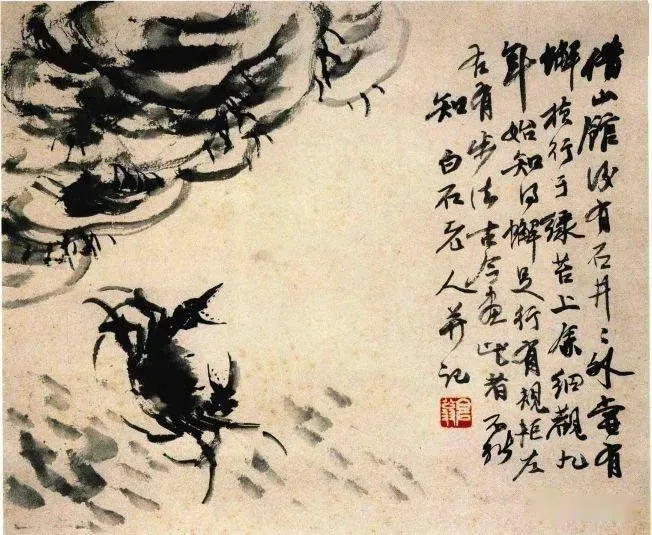 借山館後有石井井外嘗有
蠏橫行于綠苔上余細觀九
年始知得蠏足行有規矩左
右有步法古今畫此者不能
知 白石老人并記